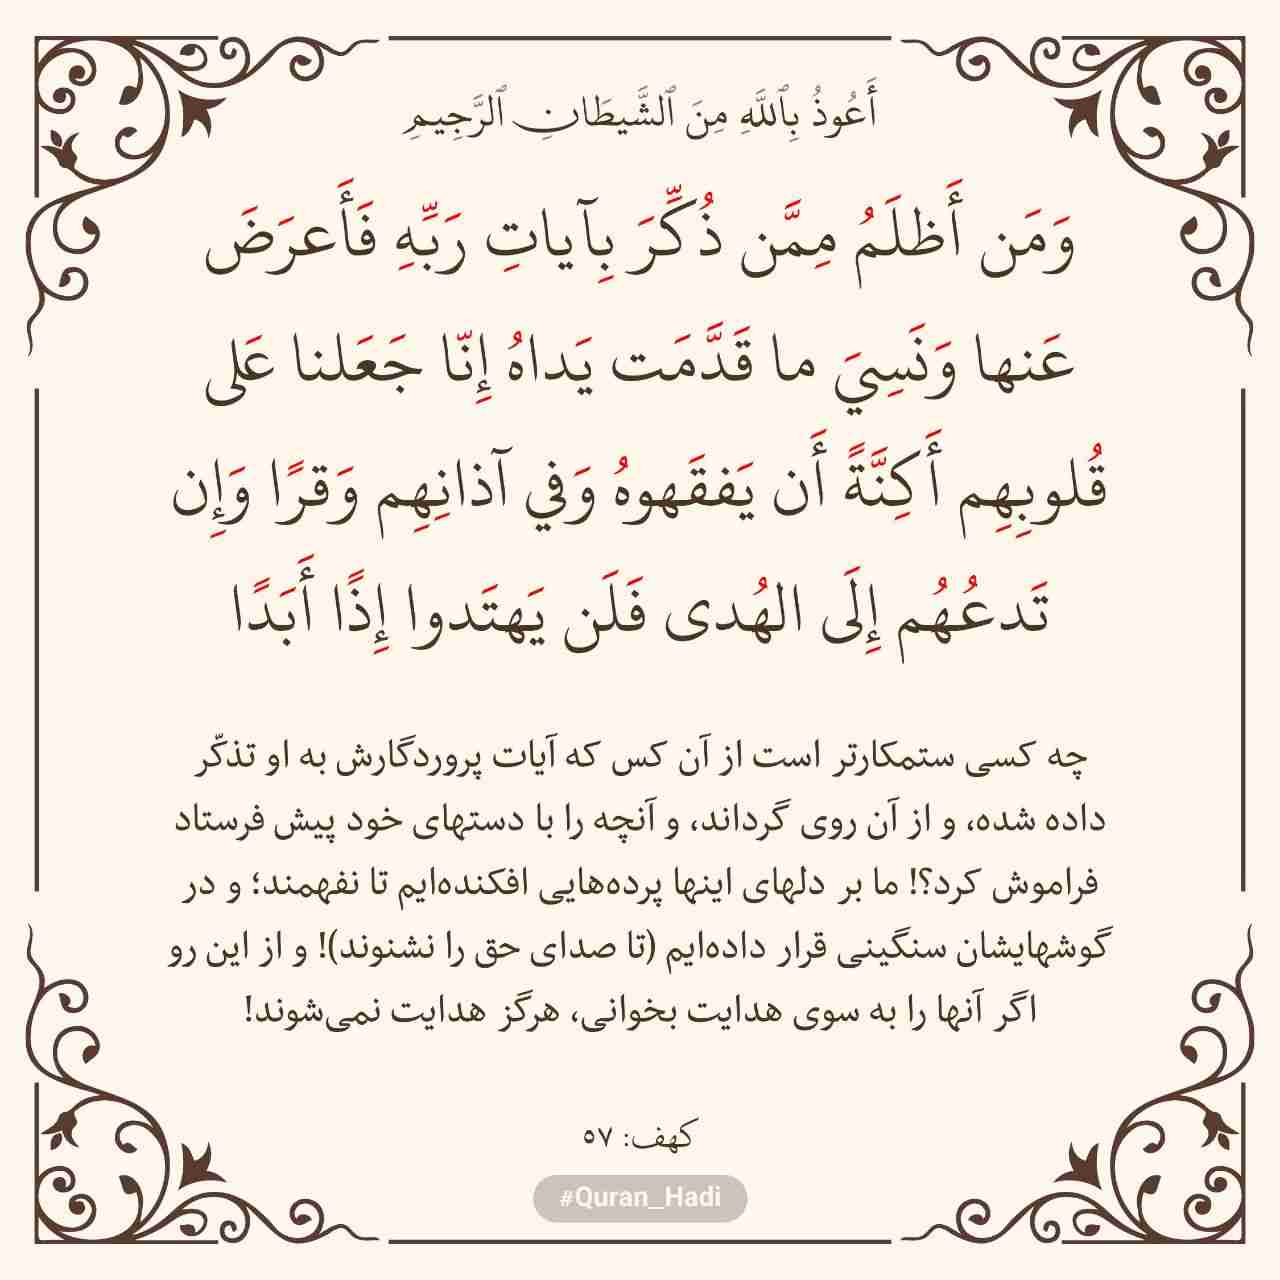 أَعُوذُ بِٱللَّهِ مِنَ ٱلشَّيطَانِ ٱلرَّجِيمِ
وَمَن أَظلَمُ مِمَّن ذُكِّرَ بِآياتِ رَبِّهِ فَأَعرَضَ
عَنها وَنَسِيَ ما قَدَّمَت يَداهُ إِنّا جَعَلنا عَلى
قُلوبِهِم أَكِنَّةً أَن يَفقَهوهُ وَفي آذانِهِم وَقرًا وَإِن
تَدعُهُم إِلَى الهُدى فَلَن يَهتَدوا إِذًا أَبَدًا
چه کسی ستمکارتر است از آن کس که آیات پروردگارش به او تذکّر
داده شده، و از آن روی گرداند، و آنچه را با دستهای خود پیش فرستاد
فراموش کرد؟! ما بر دلهای اینها پرده‌هایی افکنده‌ایم تا نفهمند؛ و در
گوشهایشان سنگینی قرار داده‌ایم (تا صدای حق را نشنوند)! و از این رو
اگر آنها را به سوی هدایت بخوانی، هرگز هدایت نمی‌شوند!
کهف: ۵۷
#Quran_Hadi